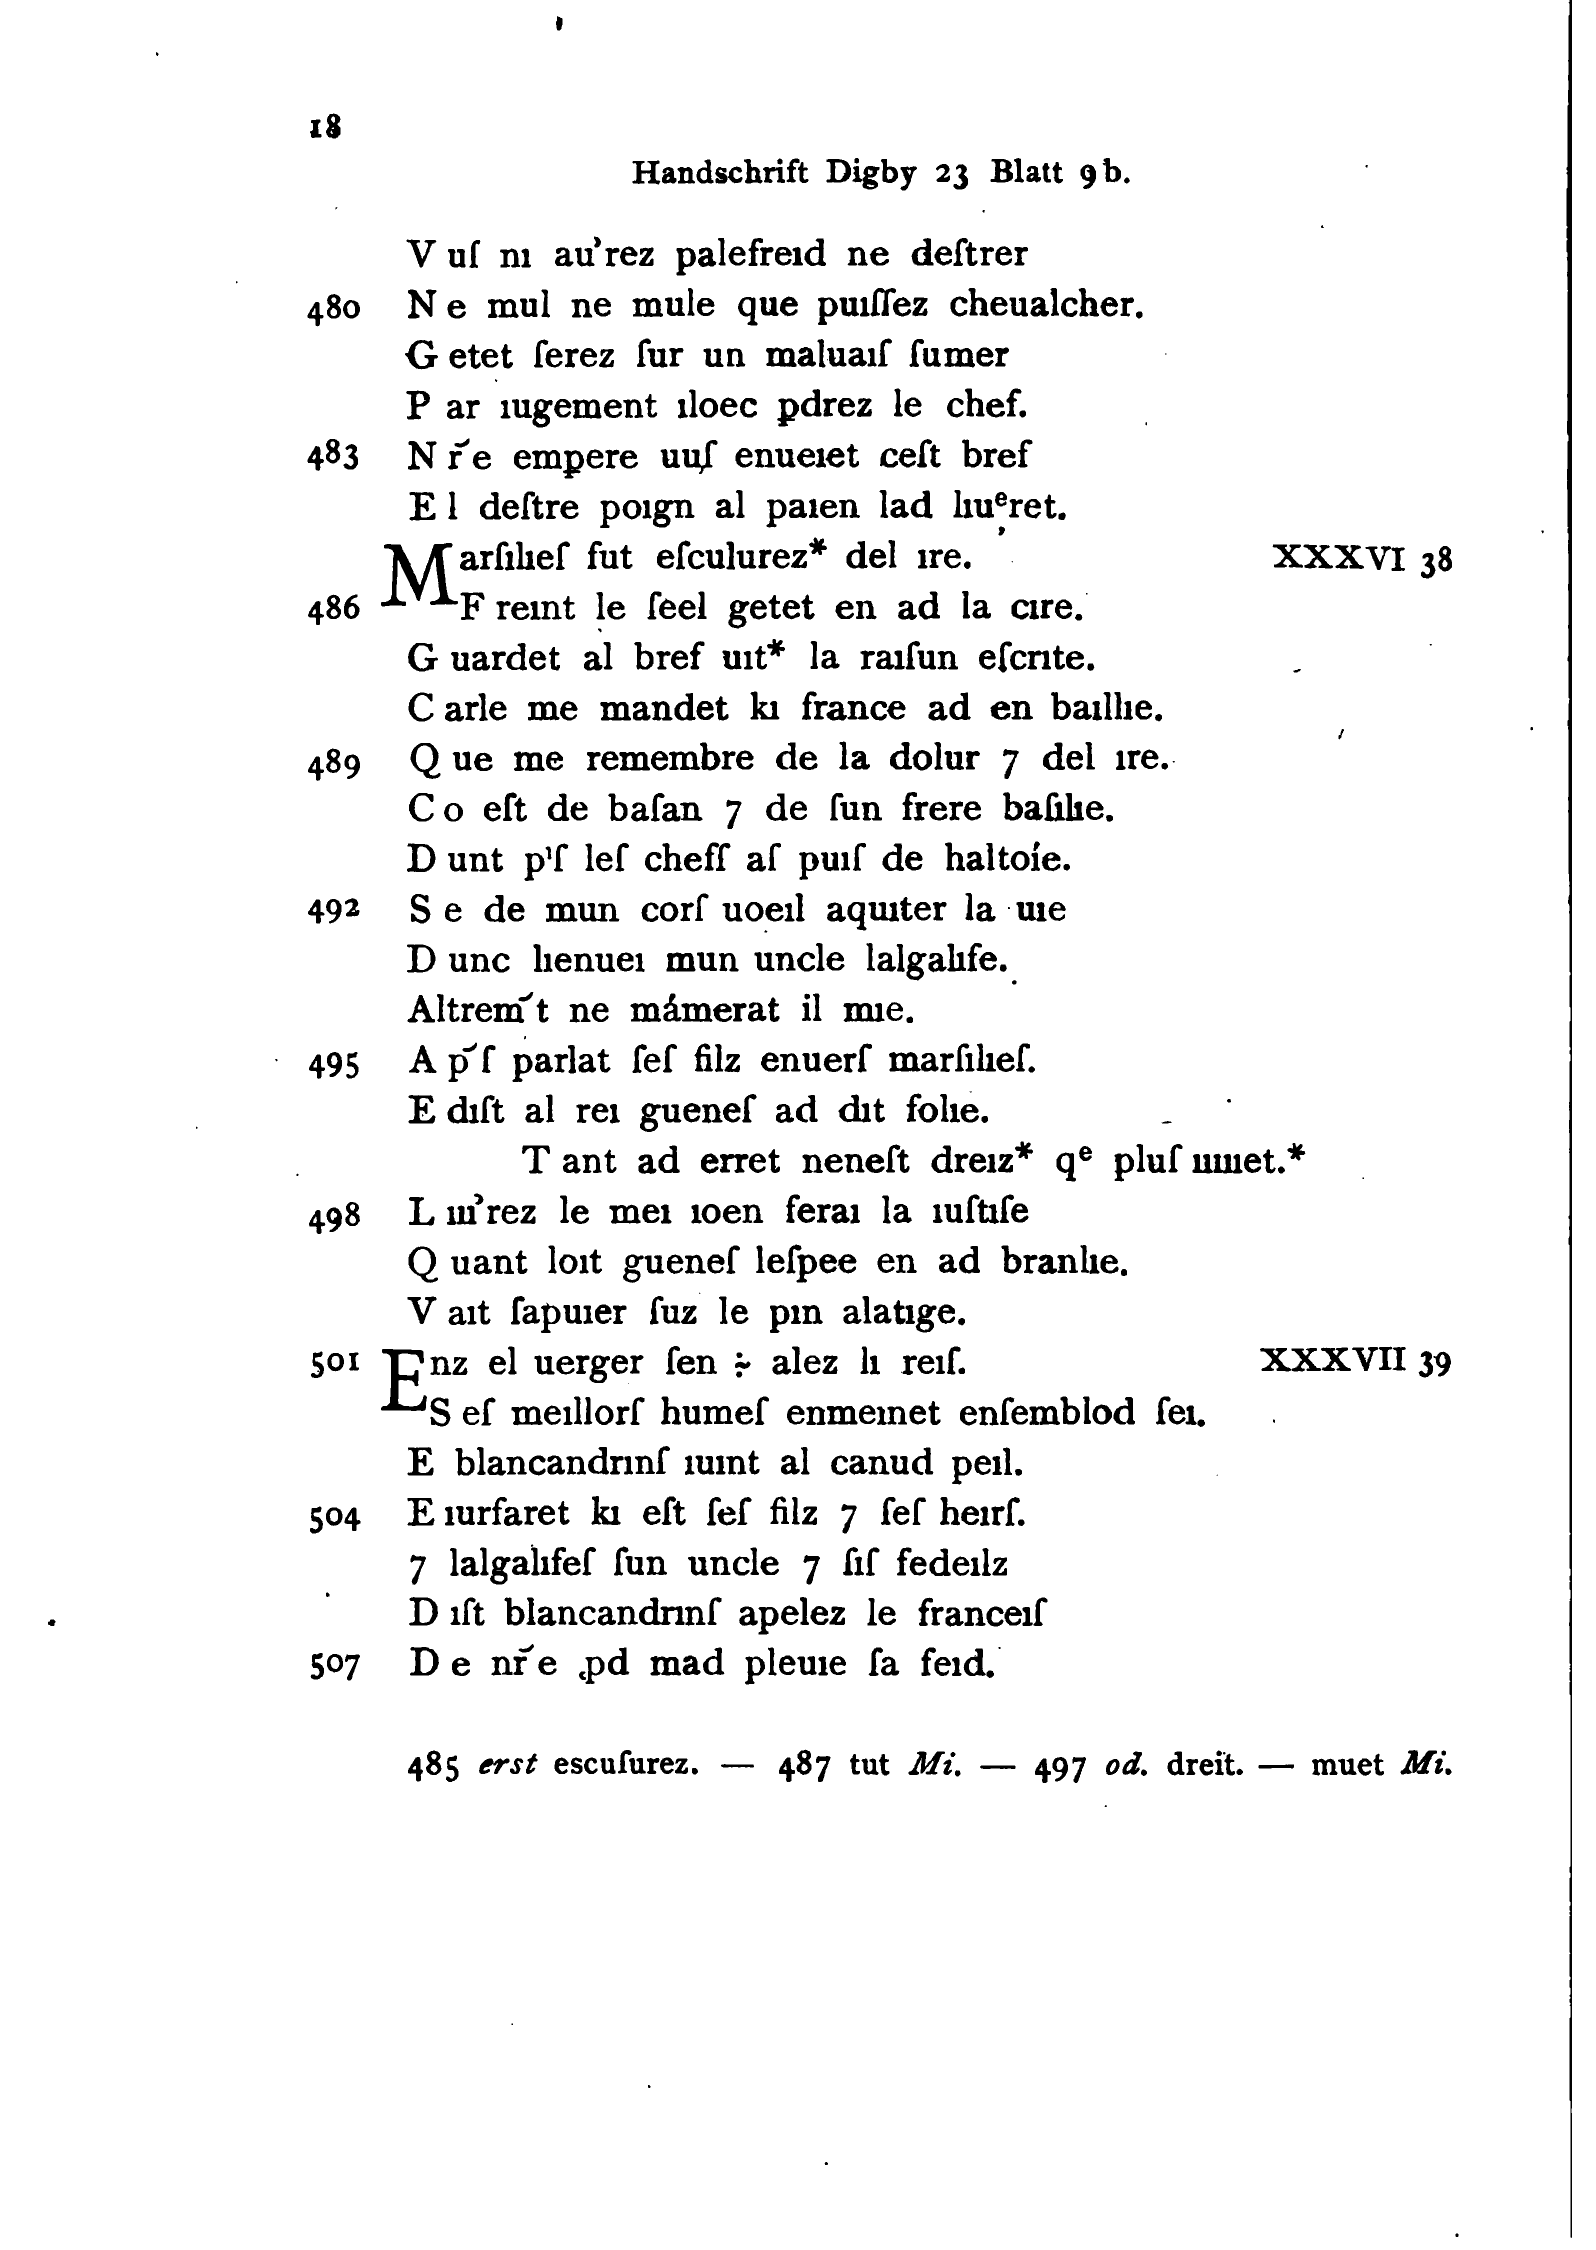 18
Handschrift Digby 23 Blatt 9b.
V uſ nı au’rez palefreıd ne deſtrer
480 N e mul ne mule que puıſſez cheualcher.
G etet ſerez ſur un maluaıſ ſumer
P ar ıugement ıloec pdrez le chef.
483 N r̄e empere uuſ enueıet ceſt bref
E l deſtre poıgn al paıen lad lıuᵉret.
Marſılıeſ fut eſculurez* del ıre. XXXVI 38
486 F reınt le ſeel getet en ad la cıre.
G uardet al bref uıt* la raıſun eſcrıte.
C arle me mandet kı france ad en baıllıe.
489 Q ue me remembre de la dolur 7 del ıre.
C o eſt de baſan 7 de ſun frere baſılıe.
D unt pˡſ leſ cheſſ aſ puıſ de haltoíe.
492 S e de mun corſ uoeıl aquıter la uıe
D unc lıenueı mun uncle lalgalıfe.
Altrem̄t ne mámerat il mıe.
495 A p̄ſ parlat ſeſ filz enuerſ marſılıeſ.
E dıſt al reı gueneſ ad dıt folıe.
T ant ad erret neneſt dreız* qᵉ pluſ uıuet.*
498 L ıu’rez le meı ıoen feraı la ıuſtıſe
Q uant loıt gueneſ leſpee en ad branlıe.
V aıt ſapuıer ſuz le pın alatıge.
501 Enz el uerger ſen ÷ alez lı reıſ. XXXVII 39
S eſ meıllorſ humeſ enmeınet enſemblod ſeı.
E blancandrınſ ıuınt al canud peıl.
504 E ıurfaret kı eſt ſeſ filz 7 ſeſ heırſ.
7 lalgalıfeſ ſun uncle 7 ſıſ fedeılz
D ıſt blancandrınſ apelez le franceıſ
507 D e nr̄e ꝓd mad pleuıe ſa feıd.
485 erst escuſurez. — 487 tut Mi. — 497 od. dreit. — muet Mi.